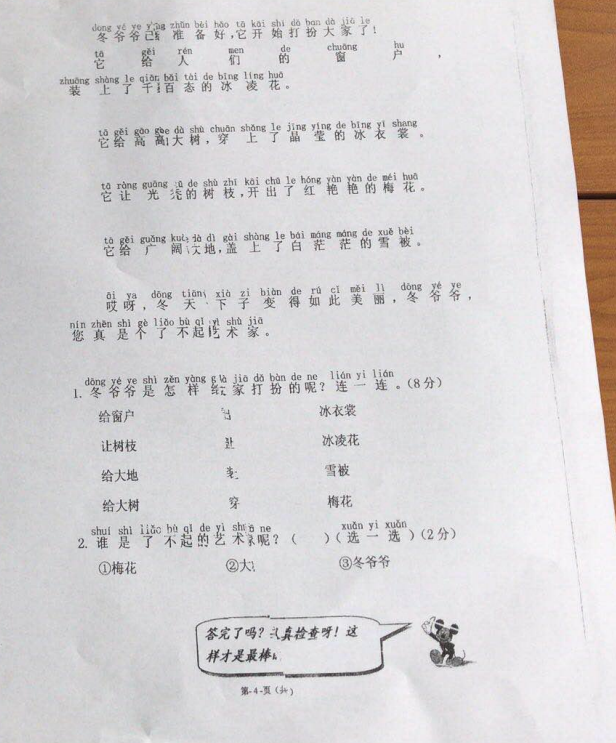 dōng yé ye yǐ jīng zhǔn bèi hǎo tā kāi shǐ dǎ ban dà jiā le
冬爷爷已经准备好,它开始打扮大家了!
tā gěi rén men de chuāng hu
它给人们的窗户,
zhuāng shàng le qiān bǎi tài de bīng líng huā
装上了千百态的冰凌花。
tā gěi gāo gāo dà shù chuān shàng le jīng yíng de bīng yī shang
它给高高大树,穿上了晶莹的冰衣裳。
tā ràng guāng de shù zhī kāi chū le hóng yàn yàn de méi huā
它让光秃的树枝,开出了红艳艳的梅花。
tā gěi guǎng kuò dà dì gài shàng le bái máng máng de xuě bèi
它给广阔大地,盖上了白茫茫的雪被。
āi ya dōng tiān xià zi biàn de rú cǐ měi lì dōng yé ye
哎呀,冬天下子变得如此美丽,冬爷爷,
nín zhēn shì gè liǎo bù qǐ yì shù jiā
您真是个了不起艺术家。
dōng yé ye shì zěn yàng g dà jiā dǎ bàn de ne lián yi lián
1.冬爷爷是怎样给家打扮的呢?连一连。(8分)
给窗户 冰衣裳
让树枝 冰凌花
给大地 雪被
给大树 穿 梅花
shuí shì liǎo bù qǐ de yì shù ne xuǎn yi xuǎn
2.谁是了不起的艺术家呢?( )(选一选)(2分)
①梅花 ②大 ③冬爷爷
答完了吗?认真检查呀!这
样才是最棒
第-4-页(共)